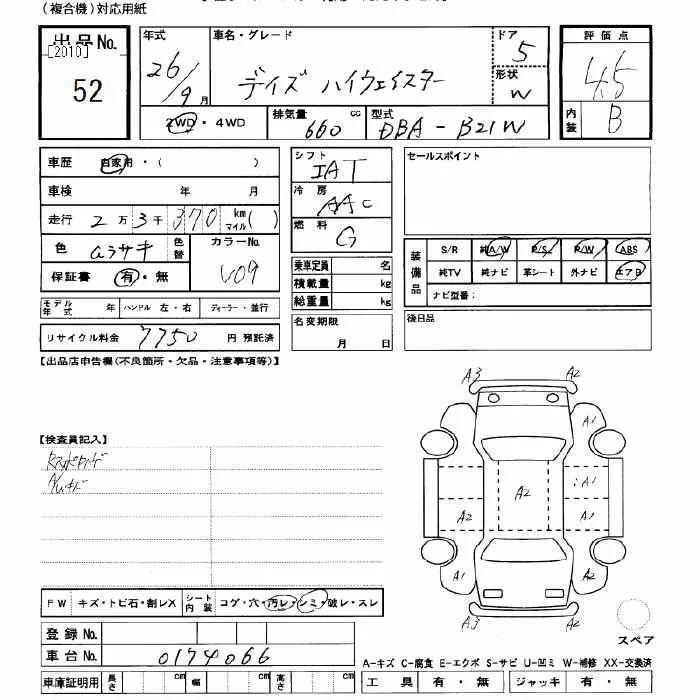 (複合機)対応用紙
出品No.
[2010]
52
年式
26/9月
車名・グレード
デイズ ハイウェイスター
ドア
5
形状
W
2WD・4WD
排気量
660 cc
型式
DBA-B21W
評価点
4.5
内装
B
車歴 自家用・( )
車検 年 月
走行 2万3千370 km マイル( )
色 ムラサキ 色替
カラーNo.
V09
保証書 有・無
モデル年式 年 ハンドル 左・右 ディーラー・並行
リサイクル料金 7750 円 預託済
シフト
IAT
冷房
AAC
燃料
G
乗車定員 名
積載量 kg
総重量 kg
名変期限
月 日
セールスポイント
装備品
S/R 純A/W P/S P/W ABS
純TV 純ナビ 革シート 外ナビ エアB
ナビ型番:
後日品
【出品店申告欄(不良箇所・欠品・注意事項等)】
【検査員記入】
FW キズ・トビ石・割レX シート内装 コゲ・穴・汚レ・シミ・破レ・スレ
登録No.
車台No. 0174066
車庫証明用 長さ cm 幅 cm 高さ cm
A3 A2
A1
A1
A2
A2 A1
A1 A2
A3 A2
スペア
A-キズ C-腐食 E-エクボ S-サビ U-凹ミ W-補修 XX-交換済
工具 有・無 ジャッキ 有・無